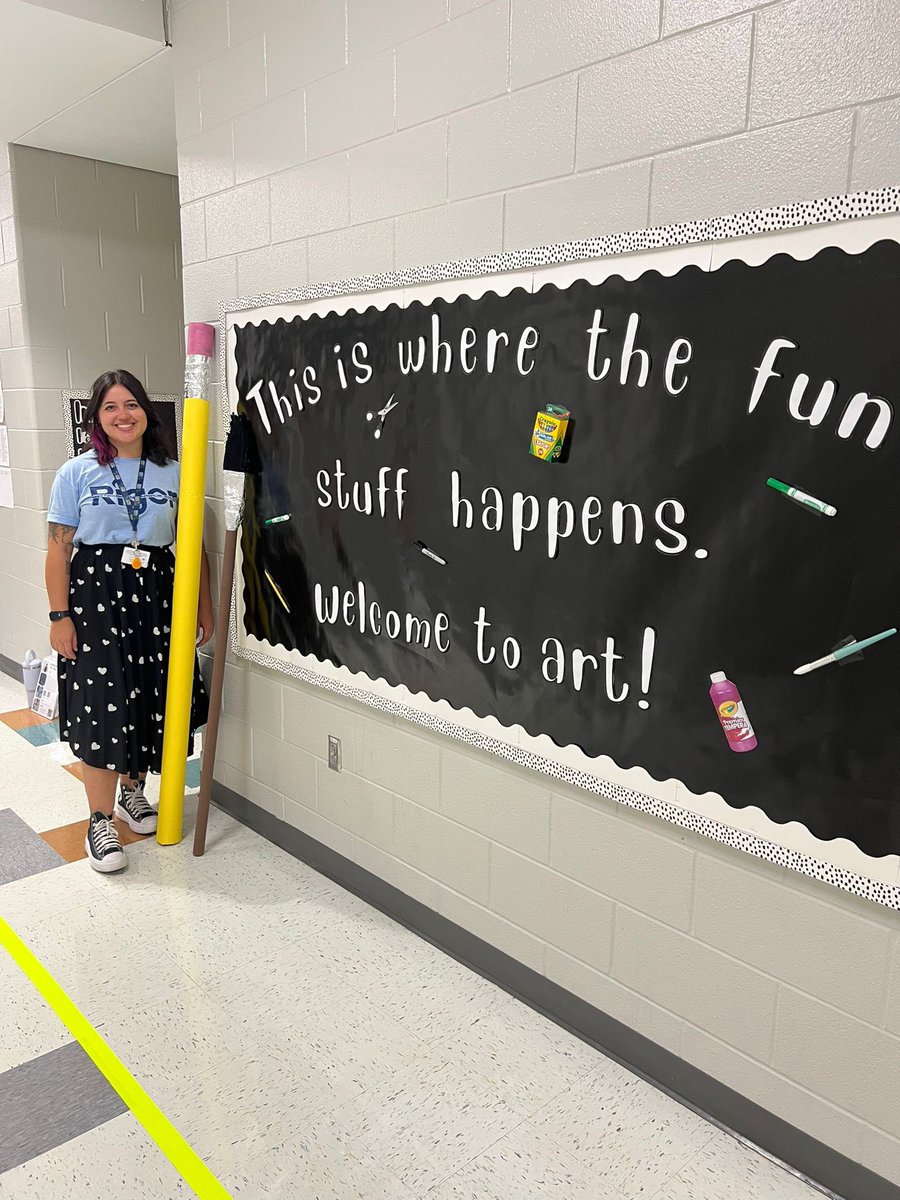 Rigor
This is where the fun
stuff happens.
welcome to art!
Crayola
Crayola